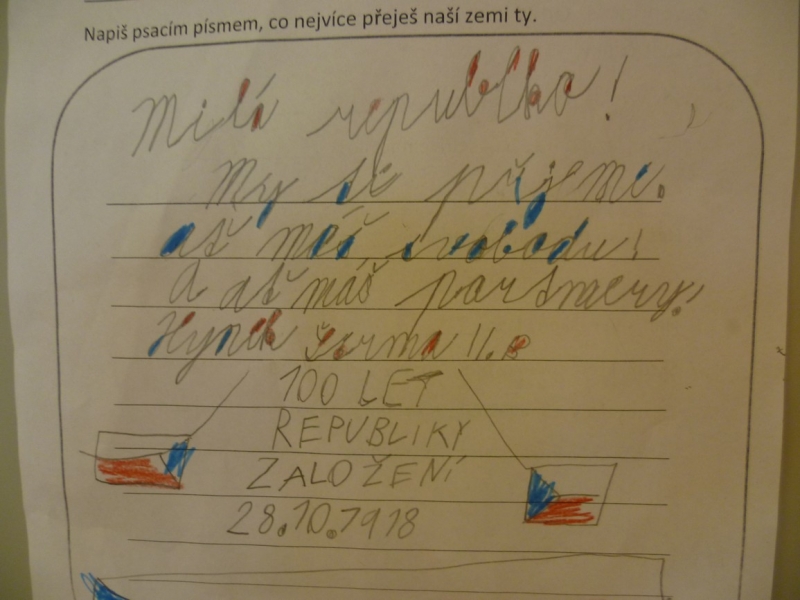 Napiš psacím písmem, co nejvíce přeješ naší zemi ty.
Milá republko!
My se přjeme.
ať máš svobodu!
A ať máš partnery!
Hynek Šerma II.B
100 LET
REPUBLIKY
ZALOŽENÍ
28.10.1918